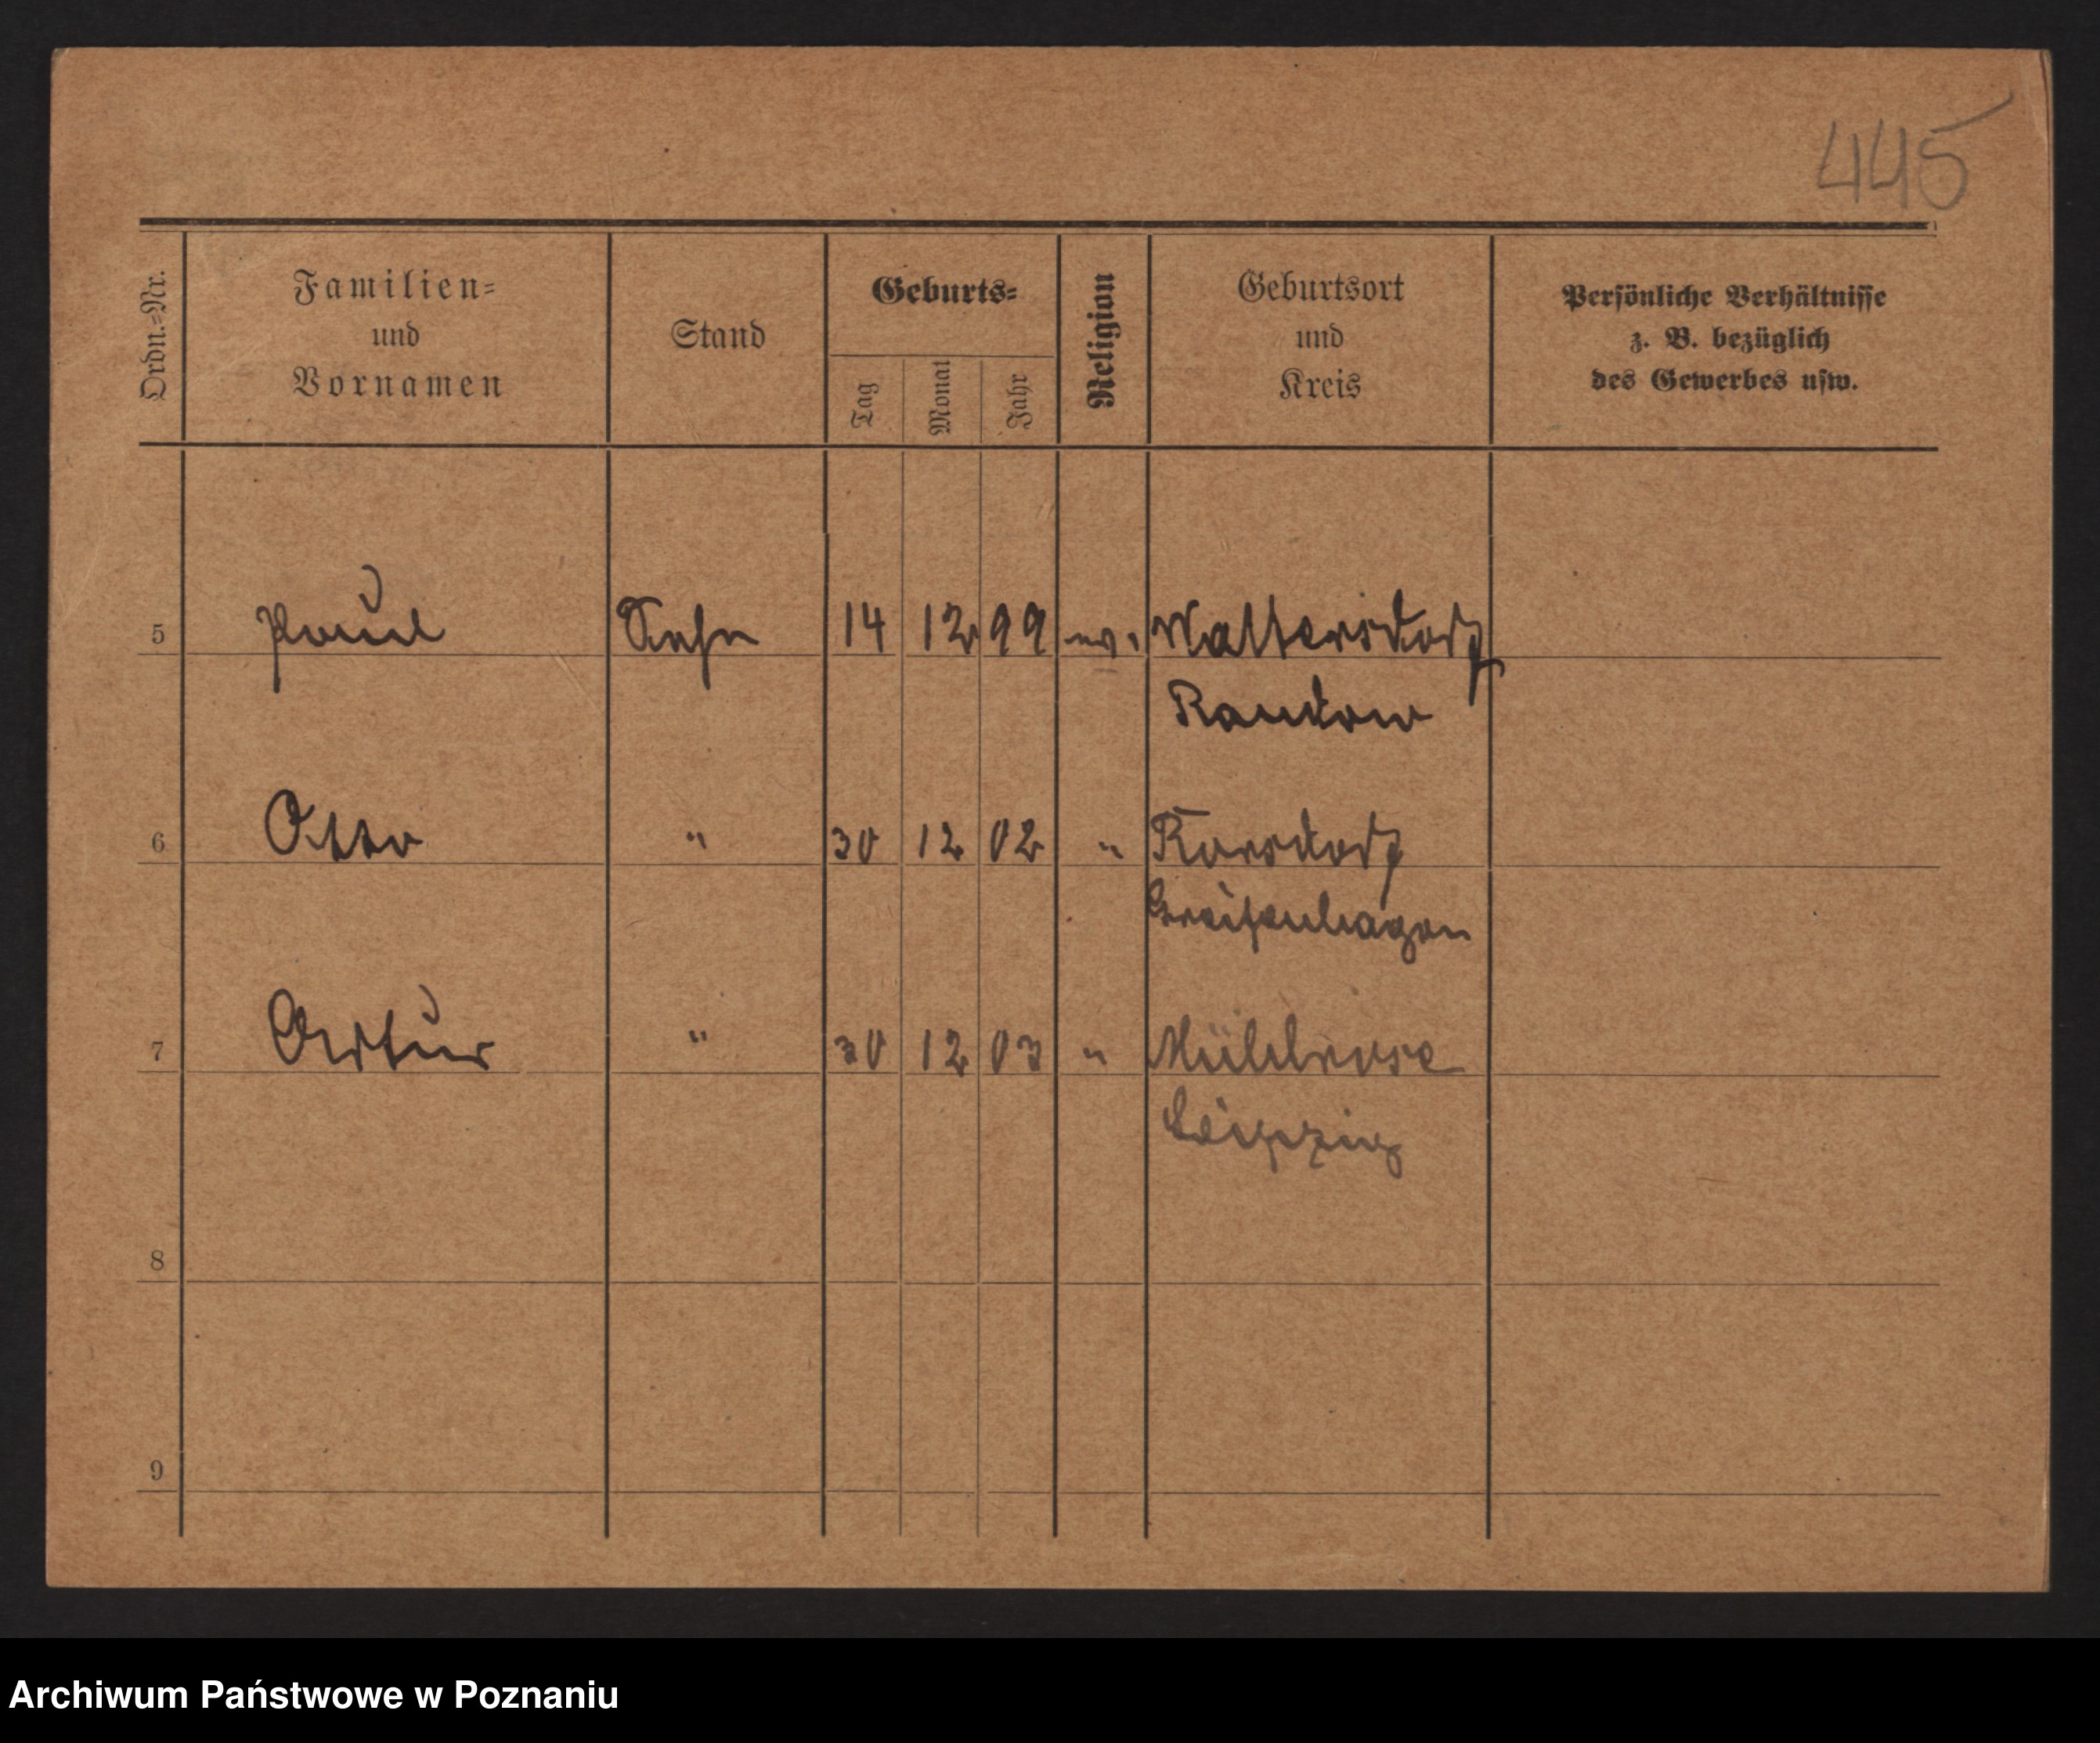 445
Ordn.-Nr.
Familien-
und
Vornamen
Stand
Geburts-
Tag
Monat
Jahr
Religion
Geburtsort
und
Kreis
Persönliche Verhältnisse
z. B. bezüglich
des Gewerbes usw.
5 Paul Sohn 14 12 99 ev. Waltersdorf
Randow
6 Otto " 30 12 02 "
Greifenhagen
7 Artur " 30 12 03 "
Leipzig
8
9
Archiwum Państwowe w Poznaniu